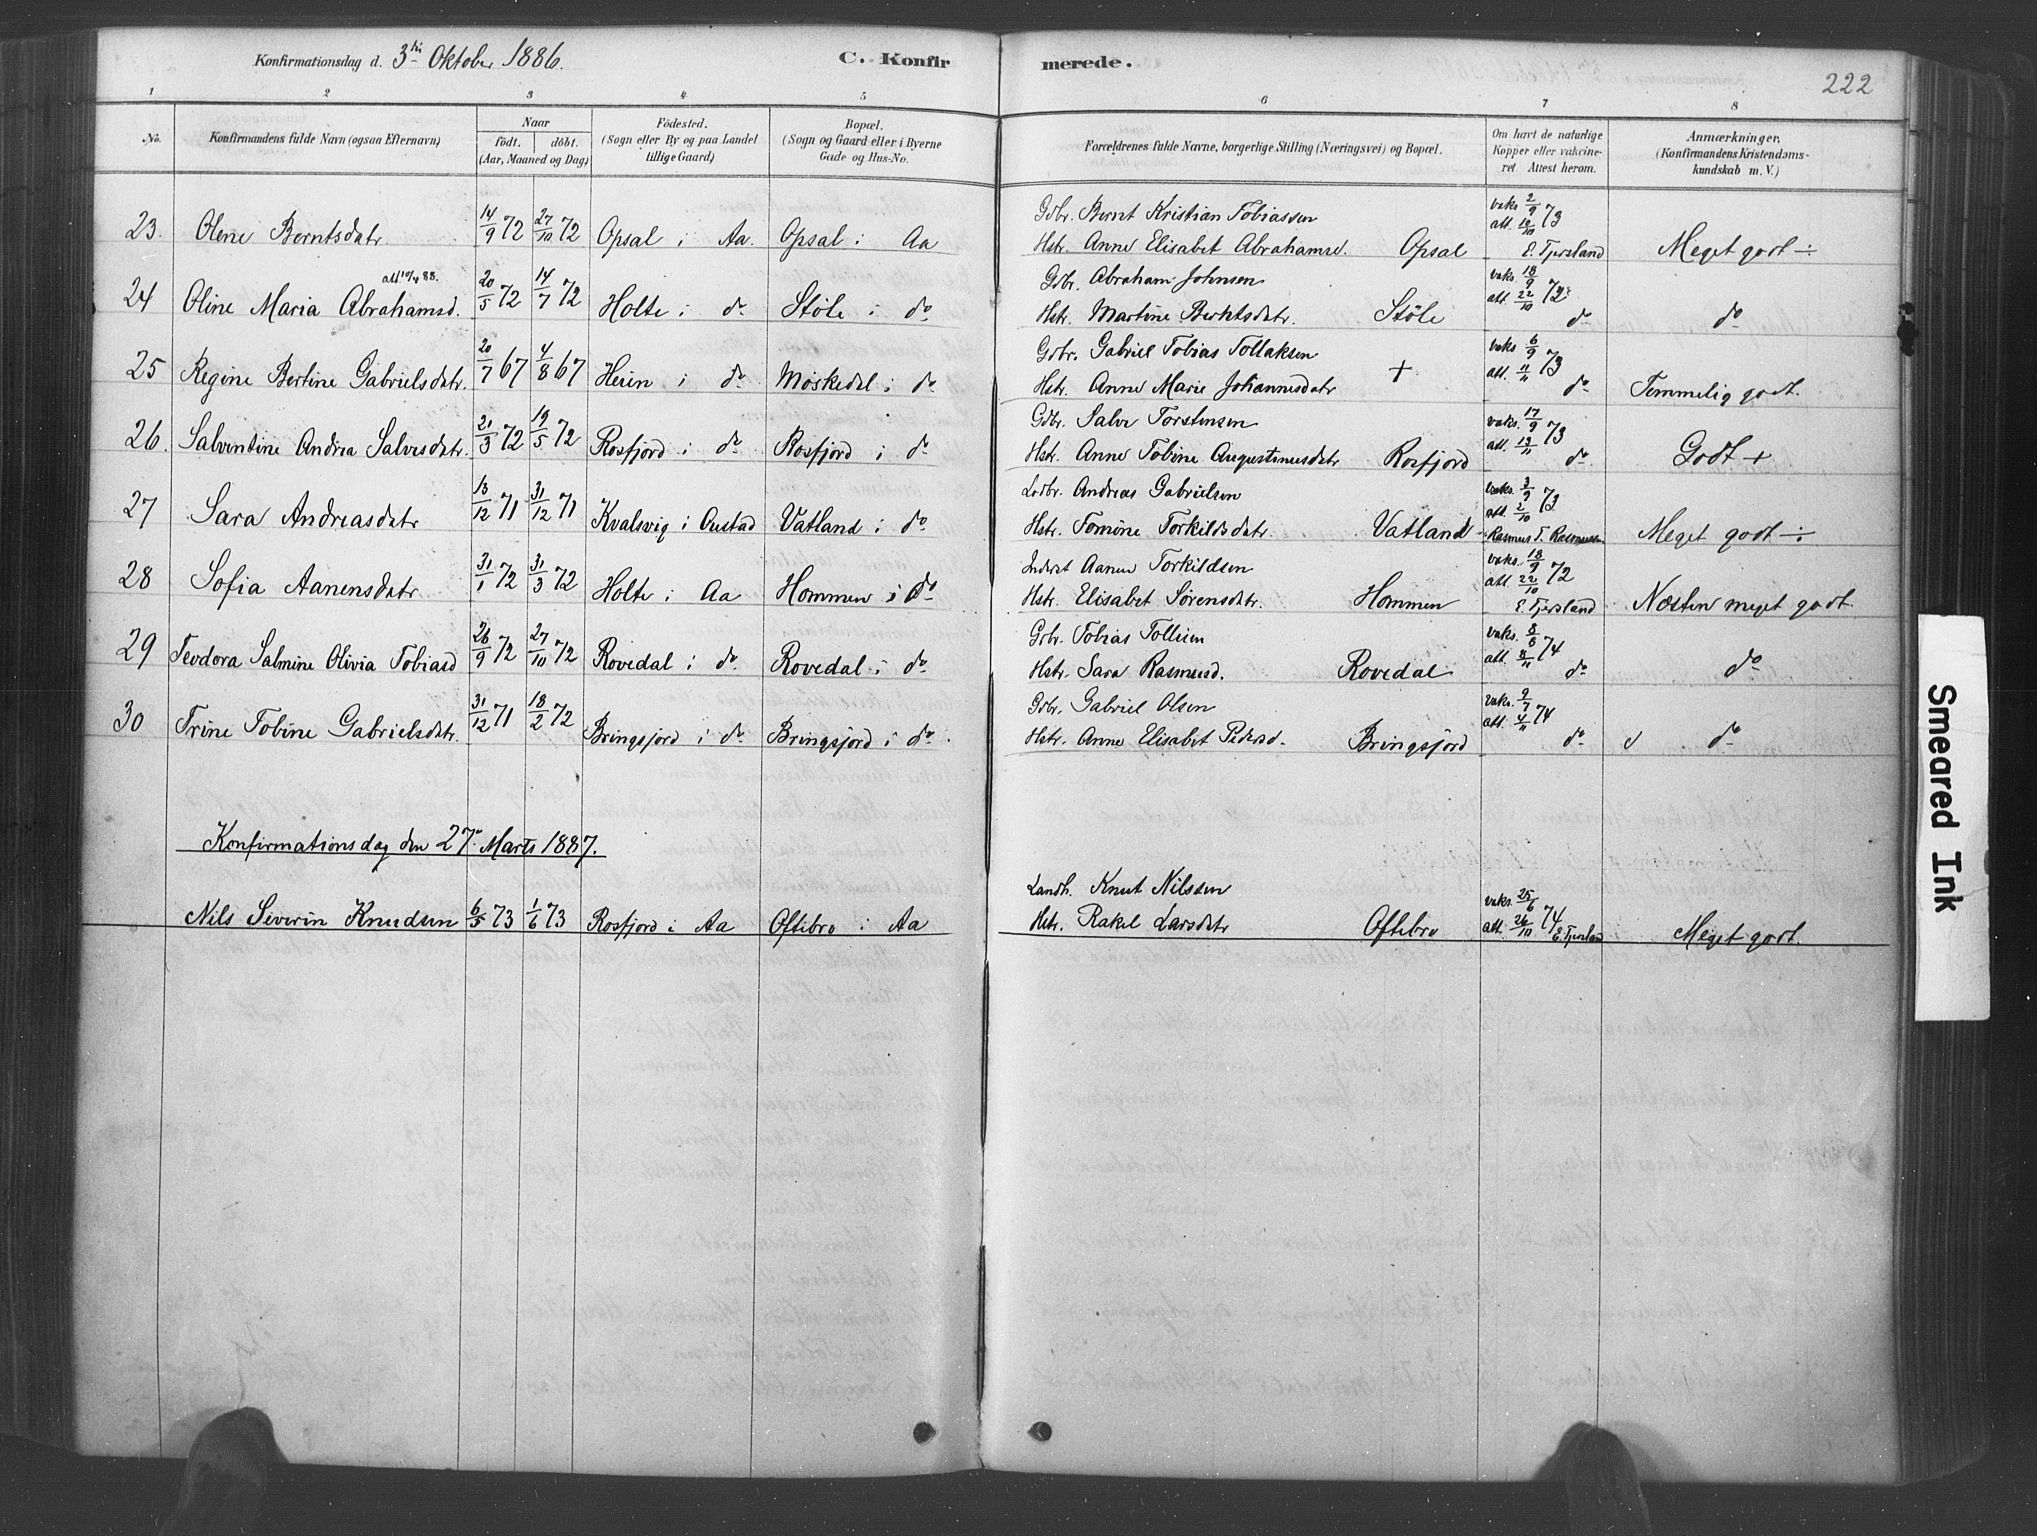 Konfirmationsdag d. 3die Oktober 1886. C. Konfirmerede. 222
1 2 3 4 5 6 7 8
No. Konfirmandens fulde Navn (ogsaa Efternavn) Naar födt. döbt. (Aar, Maaned og Dag) Födested. (Sogn eller By og paa Landet tillige Gaard) Bopæl. (Sogn og Gaard eller i Byerne Gade og Hus-No. Forældrenes fulde Navne, borgerlige Stilling (Næringsvei) og Bopæl. Om havt de naturlige Kopper eller vakcineret Attest herom. Anmærkninger. (Konfirmandens Kristendomskundskab m. V.)
Gdbr. Bernt Kristian Tobiassen vaks 2/9 73
23. Olene Berntsdatr 14/9 72 27/10 72 Opsal i Aa. Opsal i Aa Hstr. Anne Elisabet Abrahamsd. Opsal att. 12/10 E. Tjersland Meget godt ÷
att 10/4 88. Gdbr. Abraham Johnsen vaks 18/9 72
24 Oline Maria Abrahamsd. 20/5 72 14/7 72 Holte i do Støle i do Hstr. Martine Berntsdatr. Støle att. 22/10 do do
Grbr. Gabriel Tobias Tollaksen vaks 6/9 73
25 Regine Bertine Gabrielsdatr. 20/7 67 4/8 67 Heien i do Møskedal i do Hstr. Anne Marie Johannesdatr + att. 11/11 do Temmelig godt.
Gdbr. Salve Torstensen vaks. 17/9 73
26. Salventine Andrea Salvesdatr. 21/3 72 19/5 72 Rosfjord i do Rosfjord i do Hstr. Anne Tobine Augustinusdatr Rosfjord att. 13/11 do Godt +
Lodbr. Andreas Gabrielsen vaks. 3/9 73
27 Sara Andreasdatr 13/12 71 31/12 71 Kvalsvig i Austad Vatland i do Hstr. Tomine Torkildsdatr. Vatland att. 2/10 Rasmus T. Rasmussen Meget godt ÷
Inderst Aanen Torkildsen vaks. 18/9 72
28 Sofia Aanensdatr. 31/1 72 31/3 72 Holte i Aa Hommen i do Hstr. Elisabet Sørensdatr. Hommen att 22/10 E. Tjersland Næsten meget godt
Grbr. Tobias Tollisen vaks. 8/6 74
29 Teodora Salmine Olivia Tobiasd 26/9 72 27/10 72 Rovedal i do Rovedal i do Hstr. Sara Rasmusd. Rovedal att. 8/11 do do
Grbr. Gabriel Olsen vaks. 9/7 74
30 Trine Tobine Gabrielsdatr. 31/12 71 18/2 72 Bringsjord i do Bringsjord i do. Hstr. Anne Elisabet Pedersd. Bringsjord att. 4/11 do do
Konfirmationsdag den 27de Marts 1887.
Landh. Knut Nilssen vaks. 25/6 74
Nils Severin Knudsen 6/5 73 1/6 73 Rosfjord i Aa Oftebro i Aa Hstr. Rakel Larsdatr Oftebro att. 26/10 E. Tjersland Meget godt.
Smeared Ink